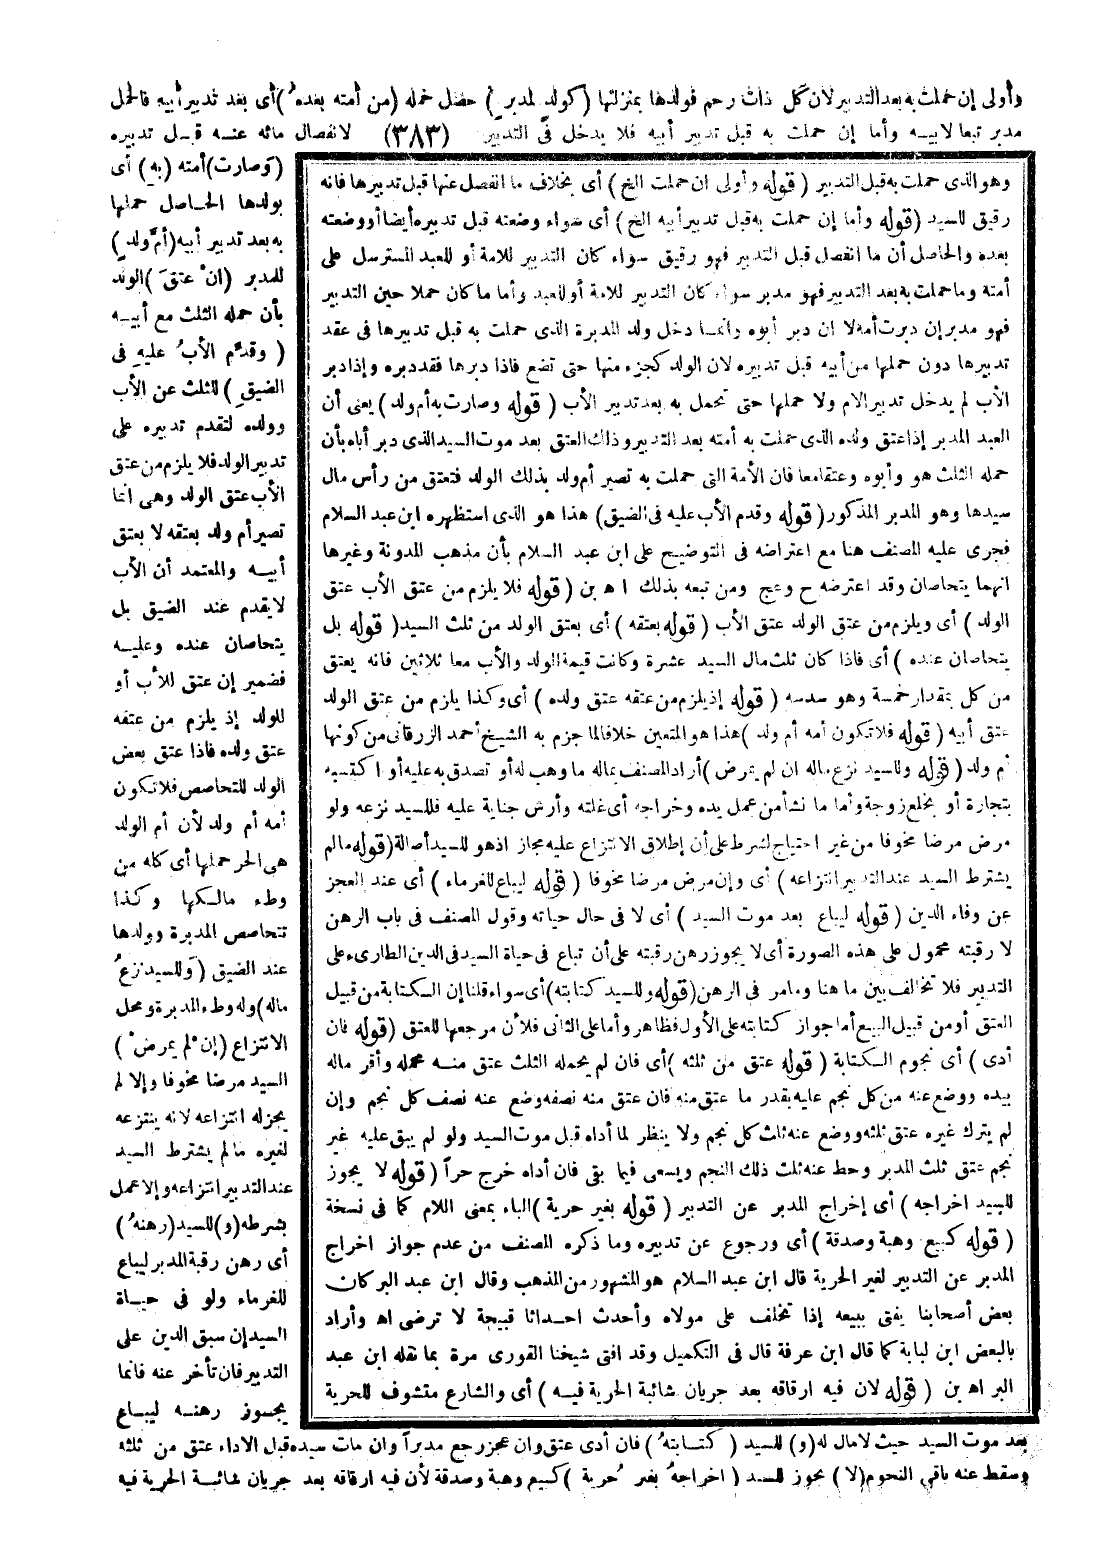 وأولى إن حملت به بعد التدبير لان كل ذات رحم فولدها بمنزلتها (كولد لمدبر) حصل حمله (من أمته بعده) أى بعد تدبير أبيه فالحمل
مدبر تبعا لابيه وأما إن حملت به قبل تدبير أبيه فلا يدخل فى التدبير (٣٨٣) لانفصال مائه عنه قبل تدبيره
(وصارت) أمته (به) أى
بولدها الحاصل حملها
به بعد تدبير أبيه (أم ولد)
للمدبر (ان عتق) الولد
بأن حمله الثلث مع أبيه
(وقدم الأب عليه فى
الضيق) للثلث عن الأب
وولده لتقدم تدبيره على
تدبير الولد فلا يلزم من عتق
الأب عتق الولد وهى انما
تصير أم ولد بعتقه لا بعتق
أبيه والمعتمد أن الأب
لا يقدم عند الضيق بل
يتحاصان عنده وعليه
فضمير إن عتق للأب أو
للولد إذ يلزم من عتقه
عتق ولده فاذا عتق بعض
الولد للتحاصص فلا تكون
أمه أم ولد لأن أم الولد
هى الحر حملها أى كله من
وطء مالكها وكذا
تتحاصص المدبرة وولدها
عند الضيق (وللسيد نزع
ماله) وله وطء المدبرة ومحل
الانتزاع (إن لم يمرض)
السيد مرضا مخوفا وإلا لم
يجز له انتزاعه لانه ينتزعه
لغيره مالم يشترط السيد
عند التدبير انتزاعه وإلا عمل
بشرطه (و) للسيد (رهنه)
أى رهن رقبة المدبر ليباع
للغرماء ولو فى حياة
السيد إن سبق الدين على
التدبير فان تأخر عنه فانما
يجوز رهنه ليباع
وهو الذى حملت به قبل التدبير (قوله وأولى ان حملت الخ) أى بخلاف ما انفصل عنها قبل تدبيرها فانه
رقيق للسيد (قوله وأما إن حملت به قبل تدبير أبيه الخ) أى سواء وضعته قبل تدبيره أيضا أو وضعته
بعده والحاصل أن ما انفصل قبل التدبير فهو رقيق سواء كان التدبير للامة أو للعبد المسترسل على
أمته وما حملت به بعد التدبير فهو مدبر سواء كان التدبير للامة أو للعبد وأما ما كان حملا حين التدبير
فهو مدبر إن دبرت أمه لا ان دبر أبوه وانما دخل ولد المدبرة الذى حملت به قبل تدبيرها فى عقد
تدبيرها دون حملها من أبيه قبل تدبيره لان الولد كجزء منها حتى تضع فاذا دبرها فقد دبره وإذا دبر
الأب لم يدخل تدبير الام ولا حملها حتى تحمل به بعد تدبير الأب (قوله وصارت به أم ولد) يعنى أن
العبد المدبر إذا عتق ولده الذى حملت به أمته بعد التدبير وذلك العتق بعد موت السيد الذى دبر أباه بأن
حمله الثلث هو وأبوه وعتقا معا فان الأمة التى حملت به تصير أم ولد بذلك الولد فتعتق من رأس مال
سيدها وهو المدبر المذكور (قوله وقدم الأب عليه فى الضيق) هذا هو الذى استظهره ابن عبد السلام
فجرى عليه المصنف هنا مع اعتراضه فى التوضيح على ابن عبد السلام بأن مذهب المدونة وغيرها
انهما يتحاصان وقد اعترضه ح وعج ومن تبعه بذلك ا هـ بن (قوله فلا يلزم من عتق الأب عتق
الولد) أى ويلزم من عتق الولد عتق الأب (قوله بعتقه) أى بعتق الولد من ثلث السيد (قوله بل
يتحاصان عنده) أى فاذا كان ثلث مال السيد عشرة وكانت قيمة الولد والأب معا ثلاثين فانه يعتق
من كل بمقدار خمسة وهو سدسه (قوله إذ يلزم من عتقه عتق ولده) أى وكذا يلزم من عتق الولد
عتق أبيه (قوله فلا تكون أمه أم ولد) هذا هو المتعين خلافا لما جزم به الشيخ أحمد الزرقانى من كونها
أم ولد (قوله وللسيد نزع ماله ان لم يمرض) أراد المصنف بماله ما وهب له أو تصدق به عليه أو اكتسبه
بتجارة أو بخلع زوجة وأما ما نشأ من عمل يده وخراجه أى غلته وأرش جناية عليه فللسيد نزعه ولو
مرض مرضا مخوفا من غير احتياج لشرط على أن إطلاق الانتزاع عليه مجاز اذ هو للسيد أصالة (قوله مالم
يشترط السيد عند التدبير انتزاعه) أى وإن مرض مرضا مخوفا (قوله ليباع للغرماء) أى عند العجز
عن وفاء الدين (قوله ليباع بعد موت السيد) أى لا فى حال حياته وقول المصنف فى باب الرهن
لا رقبته محمول على هذه الصورة أى لا يجوز رهن رقبته على أن تباع فى حياة السيد فى الدين الطارىء على
التدبير فلا تخالف بين ما هنا وما مر فى الرهن (قوله وللسيد كتابته) أى سواء قلنا إن الكتابة من قبيل
العتق أو من قبيل البيع أما جواز كتابته على الأول فظاهر وأما على الثانى فلأن مرجعها للعتق (قوله فان
أدى) أى نجوم الكتابة (قوله عتق من ثلثه) أى فان لم يحمله الثلث عتق منه محمله وأقر ماله
بيده ووضع عنه من كل نجم عليه بقدر ما عتق منه فان عتق منه نصفه وضع عنه نصف كل نجم وإن
لم يترك غيره عتق ثلثه ووضع عنه ثلث كل نجم ولا ينظر لما أداه قبل موت السيد ولو لم يبق عليه غير
نجم عتق ثلث المدبر وحط عنه ثلث ذلك النجم ويسعى فيما بقى فان أداه خرج حراً (قوله لا يجوز
للسيد اخراجه) أى إخراج المدبر عن التدبير (قوله بغير حرية) الباء بمعنى اللام كما فى نسخة
(قوله كبيع وهبة وصدقة) أى ورجوع عن تدبيره وما ذكره المصنف من عدم جواز اخراج
المدبر عن التدبير لغير الحرية قال ابن عبد السلام هو المشهور من المذهب وقال ابن عبد البر كان
بعض أصحابنا يفتى ببيعه إذا تخلف على مولاه وأحدث احداثا قبيحة لا ترضى اهـ وأراد
بالبعض ابن لبابة كما قال ابن عرفة قال فى التكميل وقد افتى شيخنا القورى مرة بما نقله ابن عبد
البر اهـ بن (قوله لان فيه ارقاقه بعد جريان شائبة الحرية فيه) أى والشارع متشوف للحرية
بعد موت السيد حيث لا مال له (و) للسيد (كتابته) فان أدى عتق وان عجز رجع مدبراً وان مات سيده قبل الاداء عتق من ثلثه
وسقط عنه باقى النجوم (لا) يجوز للسيد (اخراجه بغير حرية) كبيع وهبة وصدقة لأن فيه ارقاقه بعد جريان شائبة الحرية فيه